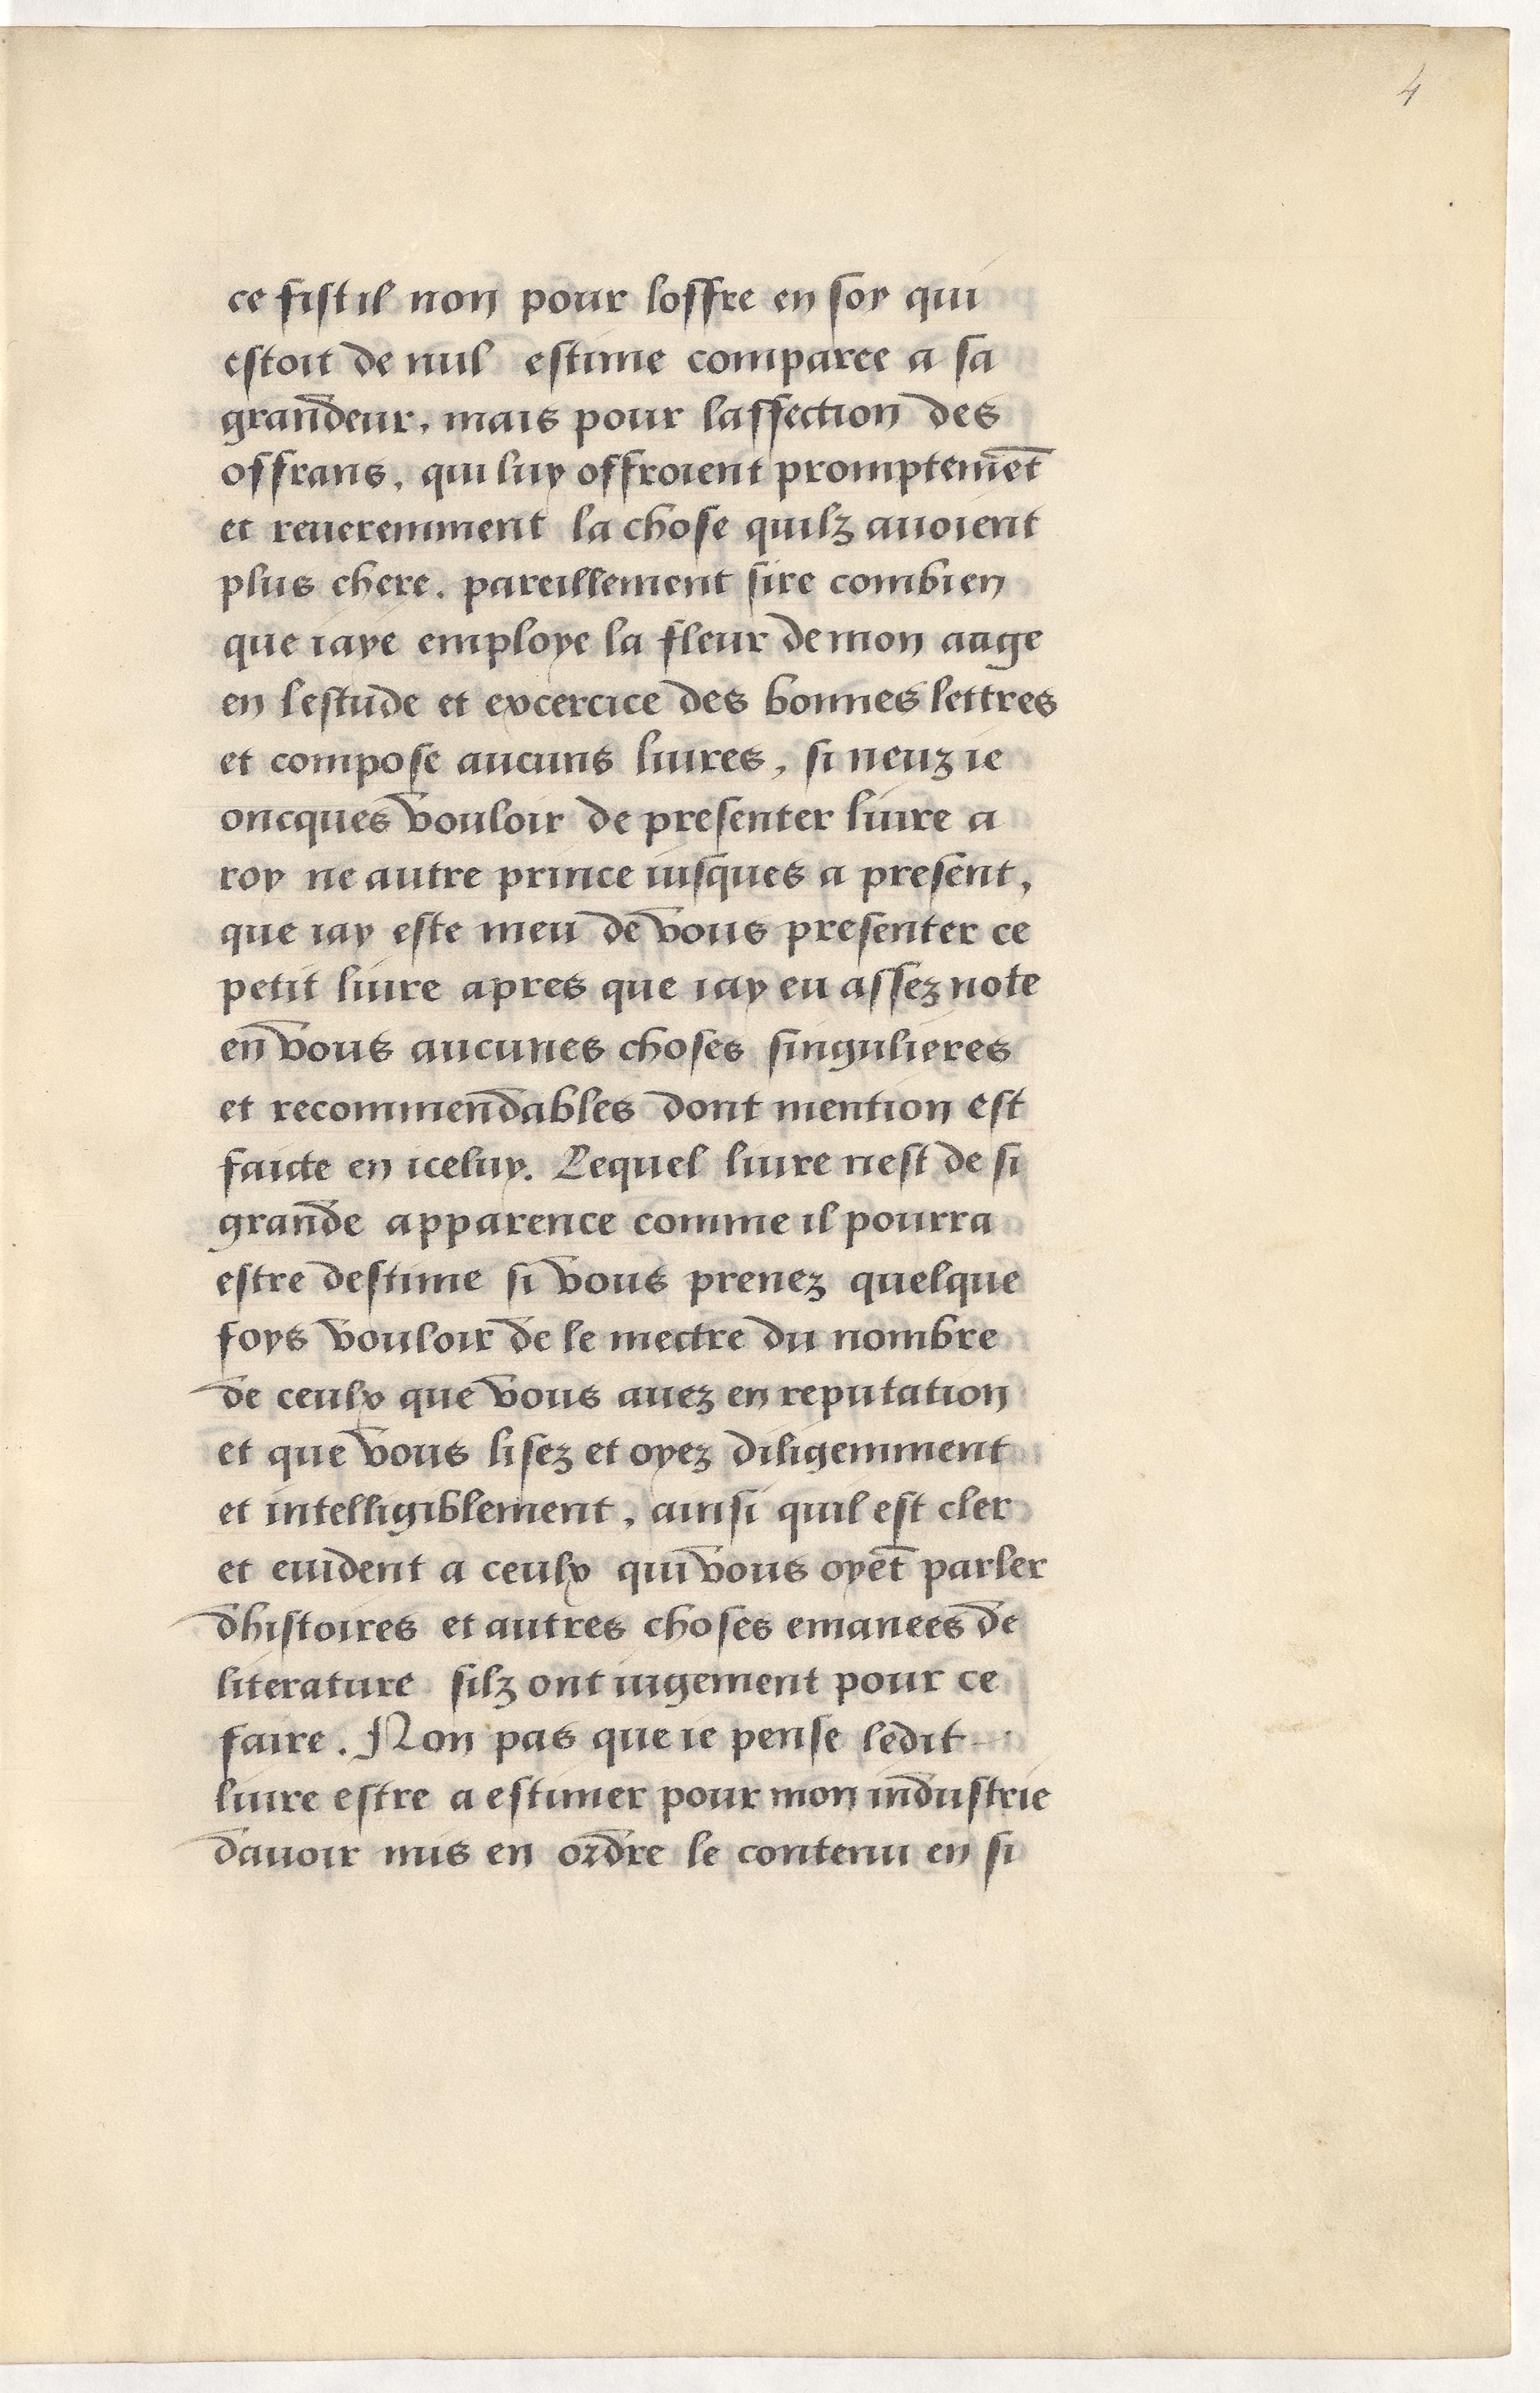 4
ce fist il non pour loffre en soy qui
estoit de nul estime comparee a sa
grandeur, mais pour laffection des
offrans, qui luy offroient promptemēt
et reueremment la chose quilz auoient
plus chere. pareillement sire combien
que iaye employe la fleur de mon aage
en lestude et excercice des bonnes lettres
et compose aucuns liures, si neuz ie
oncques vouloir de presenter liure a
roy ne autre prince iusques a present,
que iay este meu de vous presenter ce
petit liure apres que iay eu assez note
en vous aucunes choses singulieres
et recommendables dont mention est
faicte en iceluy. Lequel liure nest de si
grande apparence comme il pourra
estre destime si vous prenez quelque
foys vouloir de le mectre du nombre
de ceulx que vous auez en reputation
et que vous lisez et oyez diligemment
et intelligiblement, ainsi quil est cler
et euident a ceulx qui vous oyēt parler
dhistoires et autres choses emanees de
literature silz ont iugement pour ce
faire. Non pas que ie pense ledit
liure estre a estimer pour mon industrie
dauoir mis en ordre le contenu en si